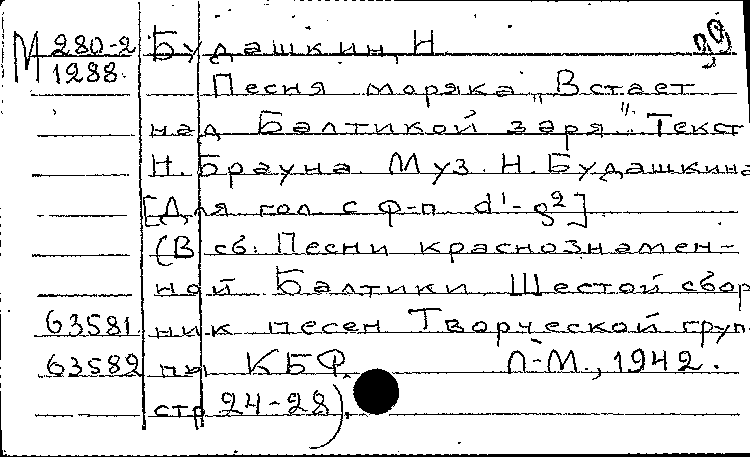 М 280-2 Будашкин, Н 99
1288.
Песня моряка „Встает
над Балтикой заря". Текст
Н. Брауна. Муз. Н. Будашкина
[Для гол. с ф-п. d¹-g²]
(В сб: Песни краснознамен-
ной Балтики. Шестой сбор
63581 ник песен Творческой груп-
63582 пы КБФ. Л-М., 1942.
стр 24-28).